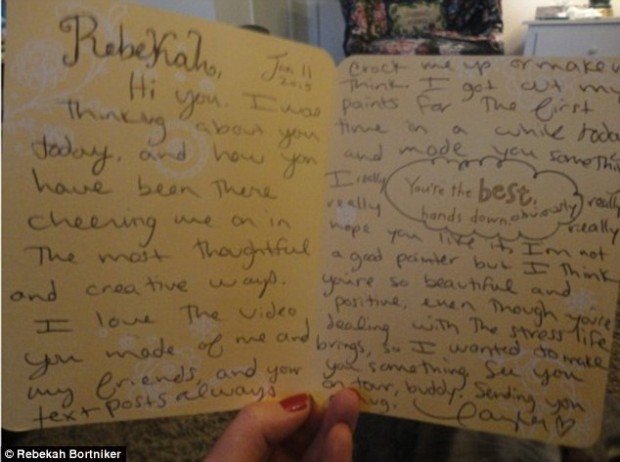 Rebekah,
Jan 11
2015
Hi you. I was
Thinking about you
today, and how you
have been there
cheering me on in
The most thoughtful
and creative ways.
I love the video
you made of me and
my friends, and your
text posts always
crack me up or make
Think. I got out my
paints for The first
time in a while toda
and made you somethi
I really
really
You're the best,
hands down, obviously
really
really
hope you like it. I'm not
a good painter but I Think
you're so beautiful and
positive, even though you're
dealing with The stress life
brings, so I wanted to make
you something. See you
on tour, buddy. Sending you
hug.
© Rebekah Bortniker